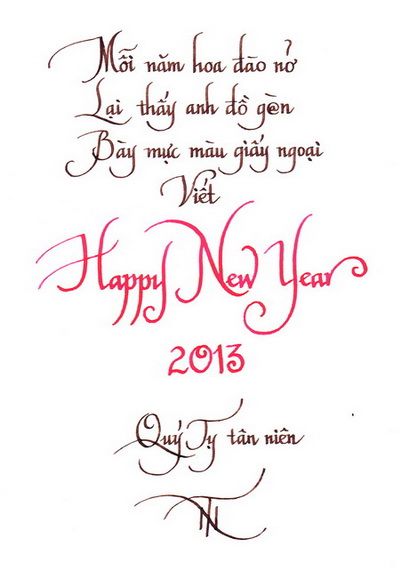 Mỗi năm hoa đào nở
Lại thấy anh đồ g@n
Bày mực màu giấy ngoại
Viết
Happy New Year
2013
Quý Tỵ tân niên